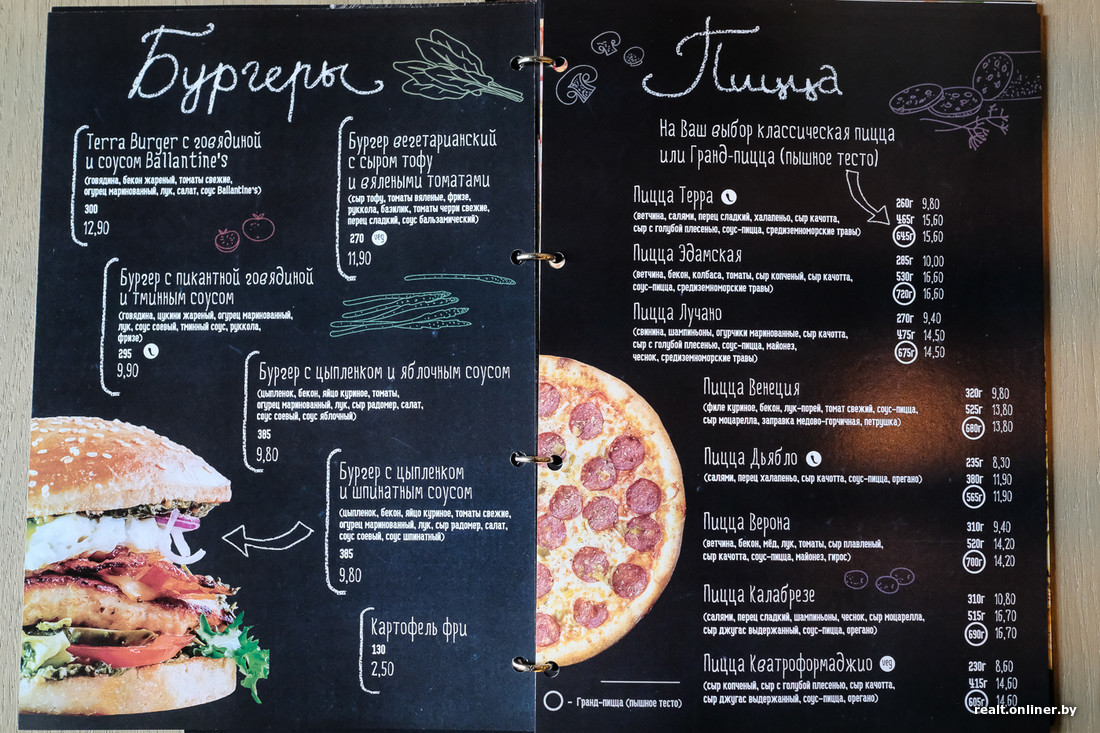 Бургеры
Terra Burger с говядиной
и соусом Ballantine's
(говядина, бекон жареный, томаты свежие,
огурец маринованный, лук, салат, соус Ballantine's)
300
12,90
Бургер вегетарианский
с сыром тофу
и вялеными томатами
(сыр тофу, томаты вяленые, фризе,
руккола, базилик, томаты черри свежие,
перец сладкий, соус бальзамический)
270 veg
11,90
Бургер с пикантной говядиной
и тминным соусом
(говядина, цукини жареный, огурец маринованный,
лук, соус соевый, тминный соус, руккола,
фризе)
295
9,90
Бургер с цыпленком и яблочным соусом
(цыпленок, бекон, яйцо куриное, томаты,
огурец маринованный, лук, сыр радомер, салат,
соус соевый, соус яблочный)
385
9,80
Бургер с цыпленком
и шпинатным соусом
(цыпленок, бекон, яйцо куриное, томаты свежие,
огурец маринованный, лук, сыр радомер, салат,
соус соевый, соус шпинатный)
385
9,80
Картофель фри
130
2,50
Пицца
На Ваш выбор классическая пицца
или Гранд-пицца (пышное тесто)
Пицца Терра
(ветчина, салями, перец сладкий, халапеньо, сыр качотта,
сыр с голубой плесенью, соус-пицца, средиземноморские травы)
260г 9,80
465г 15,60
645г 15,60
Пицца Эдамская
(ветчина, бекон, колбаса, томаты, сыр копченый, сыр качотта,
соус-пицца, средиземноморские травы)
285г 10,00
530г 16,60
720г 16,60
Пицца Лучано
(свинина, шампиньоны, огурчики маринованные, сыр качотта,
сыр с голубой плесенью, соус-пицца, майонез,
чеснок, средиземноморские травы)
270г 9,40
475г 14,50
675г 14,50
Пицца Венеция
(филе куриное, бекон, лук-порей, томат свежий, соус-пицца,
сыр моцарелла, заправка медово-горчичная, петрушка)
320г 9,80
525г 13,80
680г 13,80
Пицца Дьябло
(салями, перец халапеньо, сыр качотта, соус-пицца, орегано)
235г 8,30
380г 11,90
565г 11,90
Пицца Верона
(ветчина, бекон, мёд, лук, томаты, сыр плавленый,
сыр качотта, соус-пицца, майонез, гирос)
310г 9,40
520г 14,20
700г 14,20
Пицца Калабрезе
(салями, перец сладкий, шампиньоны, чеснок, сыр моцарелла,
сыр джугас выдержанный, соус-пицца, орегано)
310г 10,80
515г 16,70
690г 16,70
Пицца Кватроформаджио veg
(сыр копченый, сыр с голубой плесенью, сыр качотта,
сыр джугас выдержанный, соус-пицца, орегано)
230г 8,60
415г 14,60
605г 14,60
- Гранд-пицца (пышное тесто)
realt.onliner.by